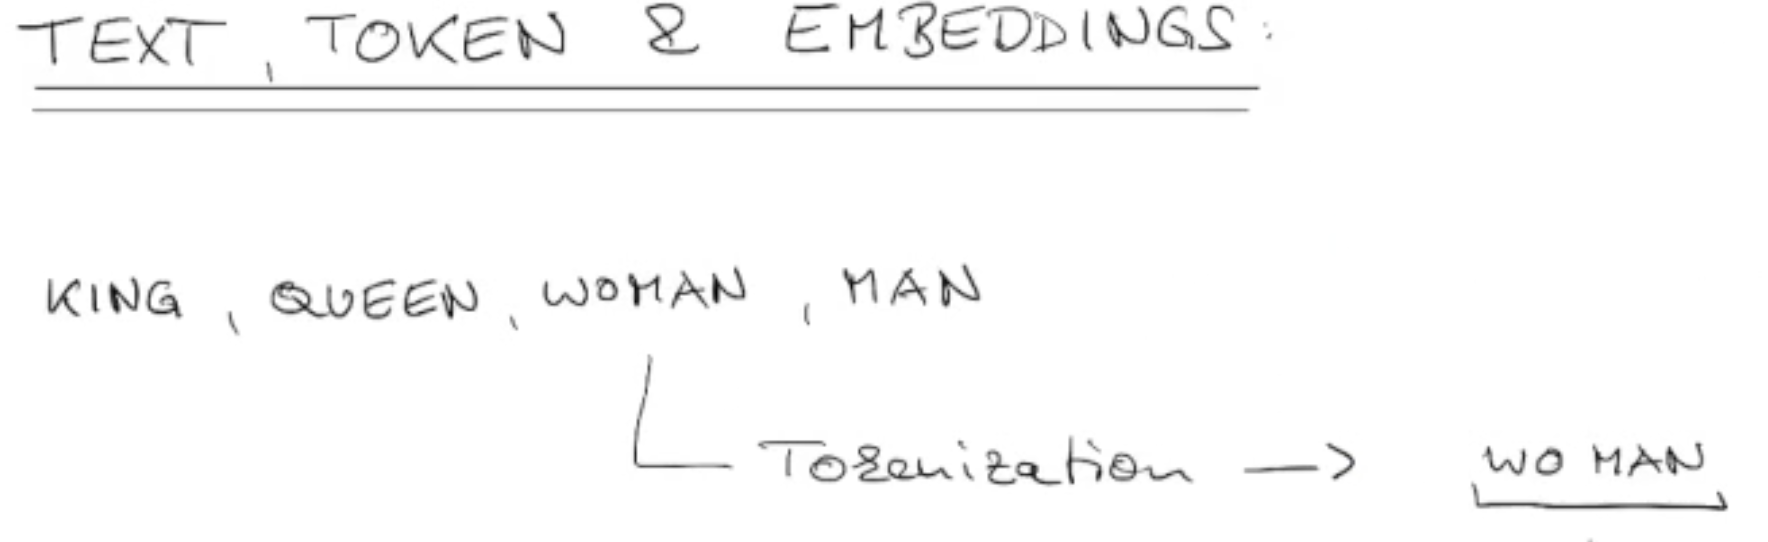 TEXT, TOKEN & EMBEDDINGS:
KING, QUEEN, WOMAN, MAN
Tokenization → WO MAN